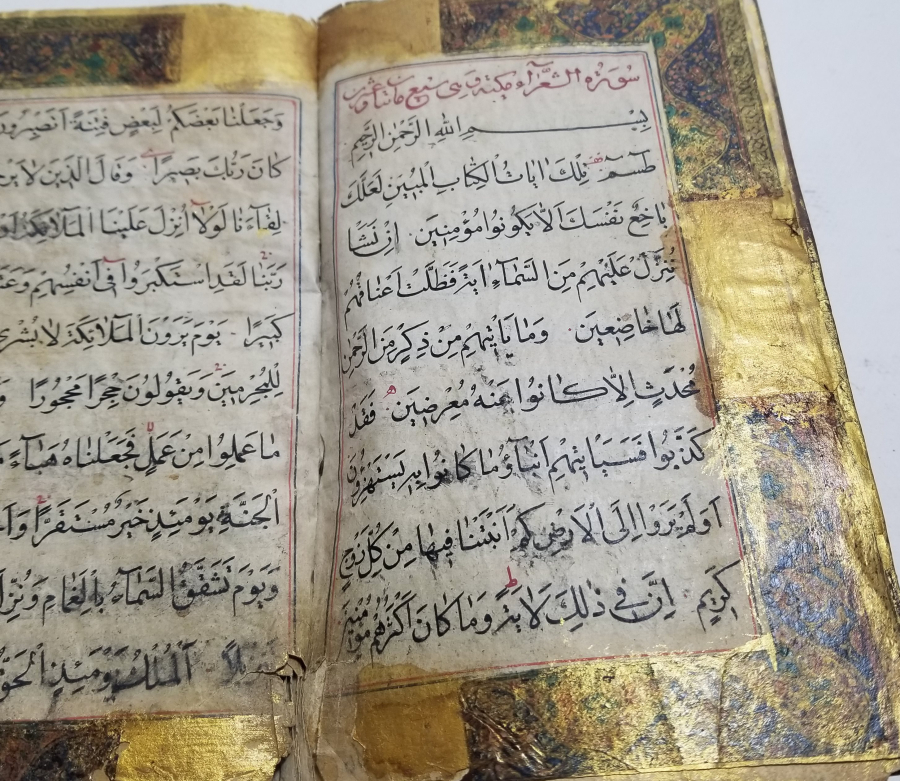 سُورَةُ الشُّعَرَآءِ مَكِّيَّةٌ وَهِيَ
بِسْمِ اللهِ الرَّحْمٰنِ الرَّحِيمِ
طٰسٓمٓ تِلْكَ اٰيَاتُ الْكِتَابِ الْمُبِينِ لَعَلَّكَ
بَاخِعٌ نَفْسَكَ اَلَّا يَكُونُوا مُؤْمِنِينَ اِنْ نَشَأْ
نُنَزِّلْ عَلَيْهِمْ مِنَ السَّمَآءِ اٰيَةً فَظَلَّتْ اَعْنَاقُهُمْ
لَهَا خَاضِعِينَ وَمَا يَأْتِيهِمْ مِنْ ذِكْرٍ مِنَ الرَّحْمٰنِ
مُحْدَثٍ اِلَّا كَانُوا عَنْهُ مُعْرِضِينَ فَقَدْ
كَذَّبُوا فَسَيَأْتِيهِمْ اَنْبَآؤُ مَا كَانُوا بِهِ يَسْتَهْزِؤُنَ
اَوَلَمْ يَرَوْا اِلَى الْاَرْضِ كَمْ اَنْبَتْنَا فِيهَا مِنْ كُلِّ زَوْجٍ
كَرِيمٍ اِنَّ فِي ذٰلِكَ لَاٰيَةً وَمَا كَانَ اَكْثَرُهُمْ مُؤْمِنِينَ
وَجَعَلْنَا بَعْضَكُمْ لِبَعْضٍ فِتْنَةً اَتَصْبِرُونَ
كَانَ رَبُّكَ بَصِيرًا وَقَالَ الَّذِينَ لَا
لِقَآءَنَا لَوْلَآ اُنْزِلَ عَلَيْنَا الْمَلَائِكَةُ اَوْ
رَبَّنَا لَقَدِ اسْتَكْبَرُوا فِي اَنْفُسِهِمْ
كَبِيرًا يَوْمَ يَرَوْنَ الْمَلَائِكَةَ لَا بُشْرٰى
لِلْمُجْرِمِينَ وَيَقُولُونَ حِجْرًا مَحْجُورًا
مَا عَمِلُوا مِنْ عَمَلٍ فَجَعَلْنَاهُ هَبَآءً
الْجَنَّةِ يَوْمَئِذٍ خَيْرٌ مُسْتَقَرًّا
وَيَوْمَ تَشَقَّقُ السَّمَآءُ بِالْغَمَامِ
اَلْمُلْكُ يَوْمَئِذٍ الْحَقُّ